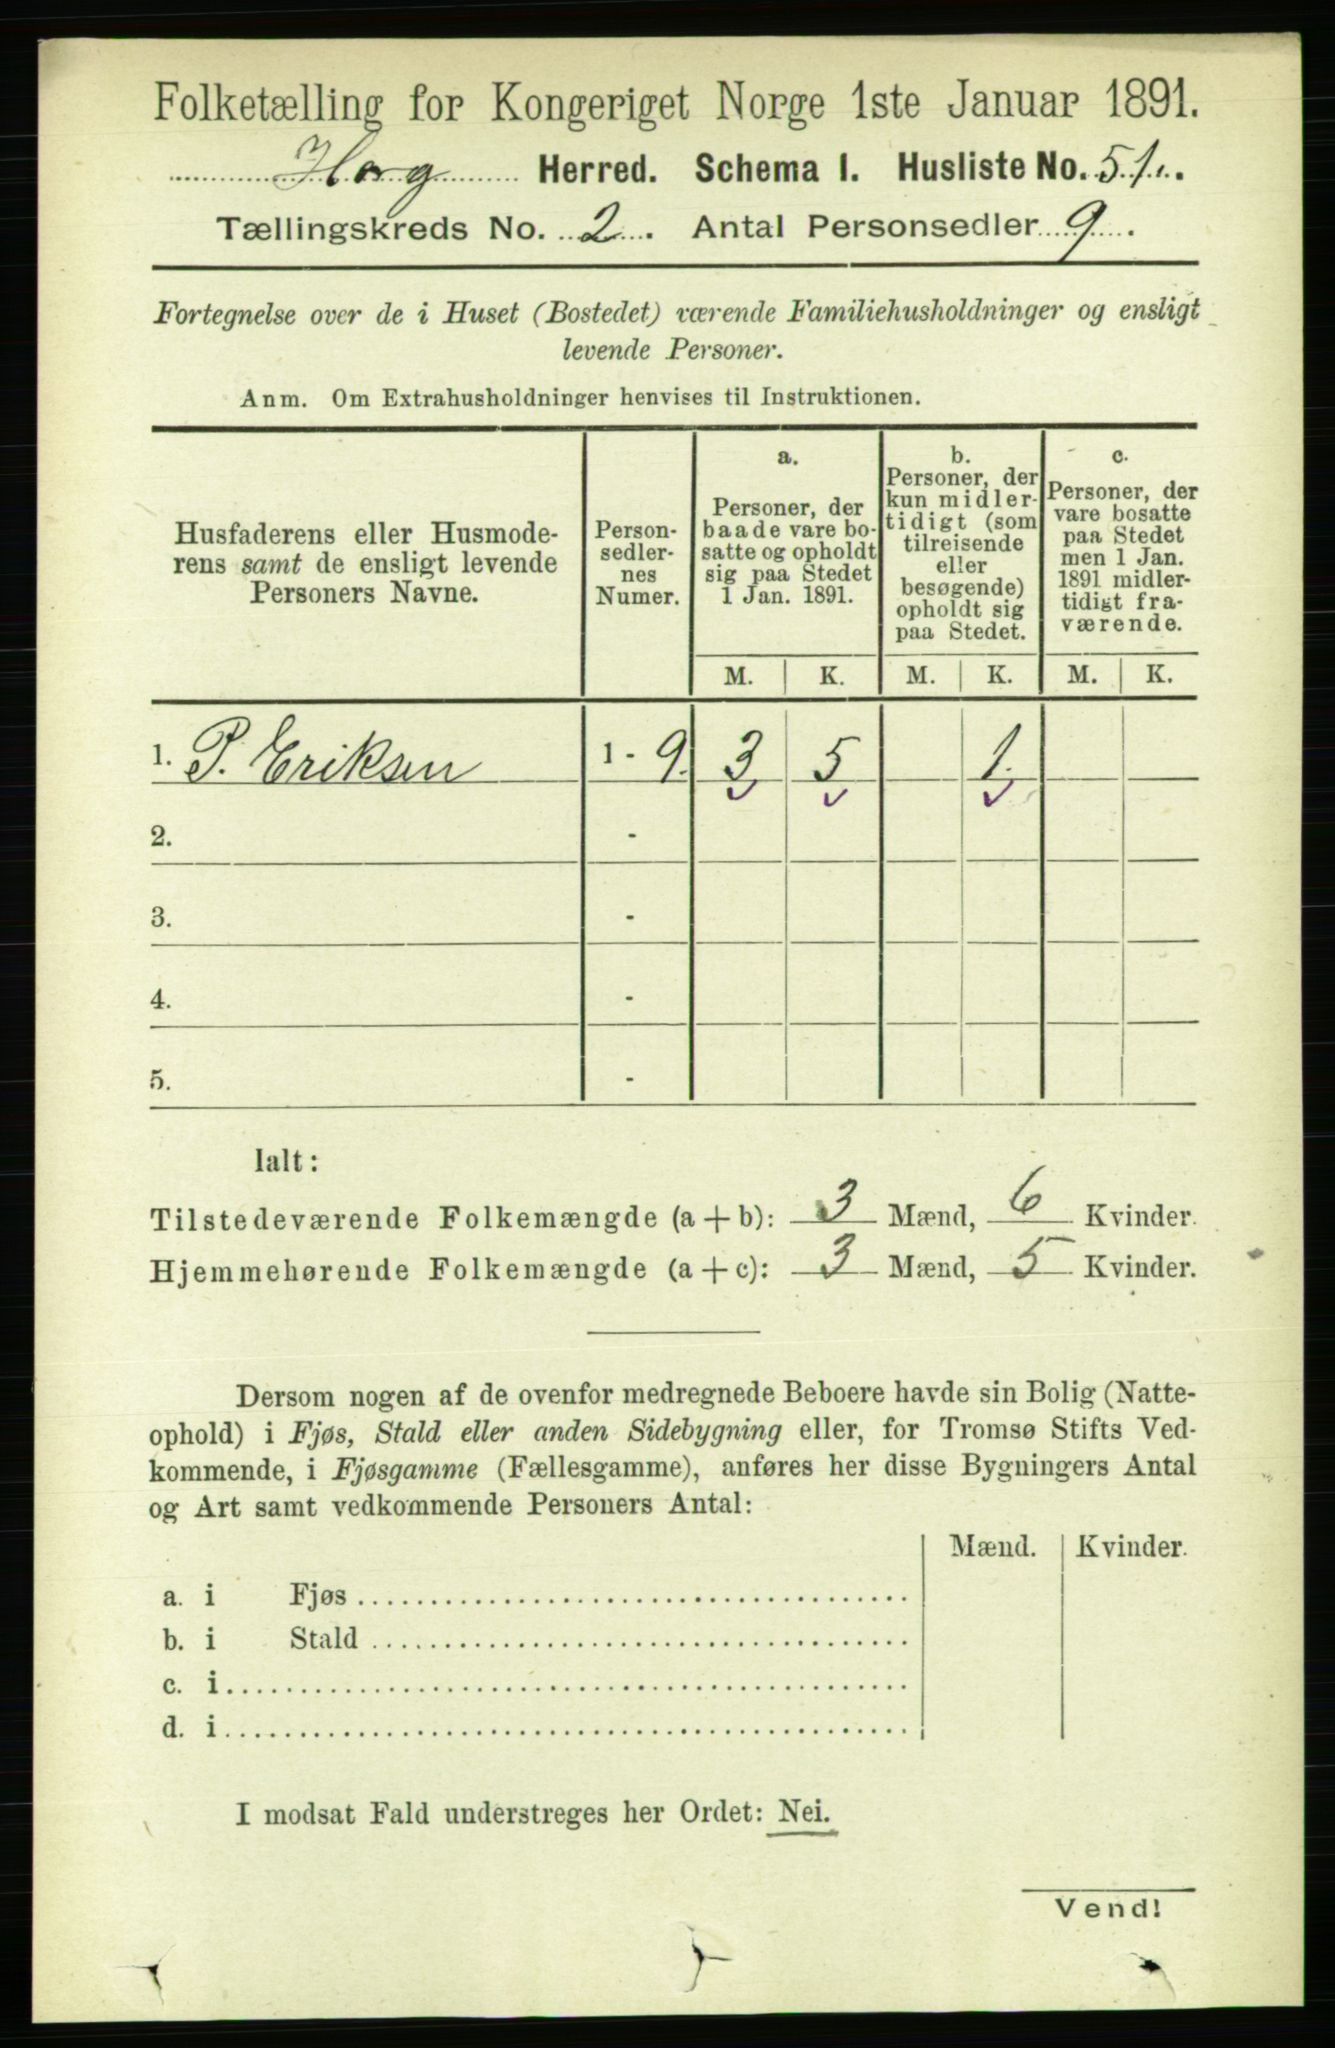 Folketælling for Kongeriget Norge 1ste Januar 1891.
Horg Herred. Schema 1. Husliste No. 51.
Tællingskreds No. 2. Antal Personsedler 9.
Fortegnelse over de i Huset (Bostedet) værende Familiehusholdninger og ensligt
levende Personer.
Anm. Om Extrahusholdninger henvises til Instruktionen.
Husfaderens eller Husmode-
rens samt de ensligt levende
Personers Navne.
Person-
sedler-
nes
Numer.
a.
Personer, der
baade vare bo-
satte og opholdt
sig paa Stedet
1 Jan. 1891.
b.
Personer, der
kun midler-
tidigt (som
tilreisende
eller
besøgende)
opholdt sig
paa Stedet.
c.
Personer, der
vare bosatte
paa Stedet
men 1 Jan.
1891 midler-
tidigt fra-
værende.
M. K. M. K. M. K.
1. P. Eriksen 1 - 9. 3 5 1.
2. -
3. -
4. -
5. -
Ialt:
Tilstedeværende Folkemængde (a + b): 3 Mænd, 6 Kvinder.
Hjemmehørende Folkemængde (a + c): 3 Mænd, 5 Kvinder.
Dersom nogen af de ovenfor medregnede Beboere havde sin Bolig (Natte-
ophold) i Fjøs, Stald eller anden Sidebygning eller, for Tromsø Stifts Ved-
kommende, i Fjøsgamme (Fællesgamme), anføres her disse Bygningers Antal
og Art samt vedkommende Personers Antal:
Mænd. Kvinder.
a. i Fjøs
b. i Stald
c. i
d. i
I modsat Fald understreges her Ordet: Nei.
Vend!